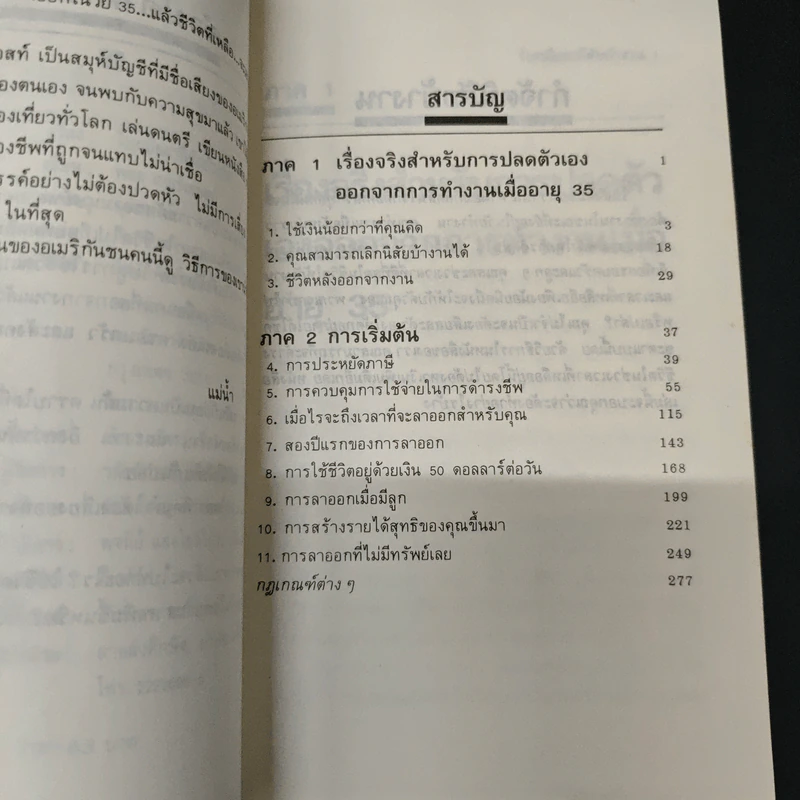 35...แล้วชีวิตที่เหลือ...
สท์ เป็นสมุห์บัญชีที่มีชื่อเสียงของ
องตนเอง จนพบกับความสุขมาแล้ว
องเที่ยวทั่วโลก เล่นดนตรี เขียนหนังสือ
องชีพที่ถูกจนแทบไม่น่าเชื่อ
รรค์อย่างไม่ต้องปวดหัว ไม่มีการ
ในที่สุด
นของอเมริกันชนคนนี้ดู วิธีการของเขา
แม่น้ำ
สารบัญ
ภาค 1 เรื่องจริงสำหรับการปลดตัวเอง 1
ออกจากการทำงานเมื่ออายุ 35
1. ใช้เงินน้อยกว่าที่คุณคิด 3
2. คุณสามารถเลิกนิสัยบ้างานได้ 18
3. ชีวิตหลังออกจากงาน 29
ภาค 2 การเริ่มต้น 37
4. การประหยัดภาษี 39
5. การควบคุมการใช้จ่ายในการดำรงชีพ 55
6. เมื่อไรจะถึงเวลาที่จะลาออกสำหรับคุณ 115
7. สองปีแรกของการลาออก 143
8. การใช้ชีวิตอยู่ด้วยเงิน 50 ดอลลาร์ต่อวัน 168
9. การลาออกเมื่อมีลูก 199
10. การสร้างรายได้สุทธิของคุณขึ้นมา 221
11. การลาออกที่ไม่มีทรัพย์เลย 249
กฎเกณฑ์ต่าง ๆ 277